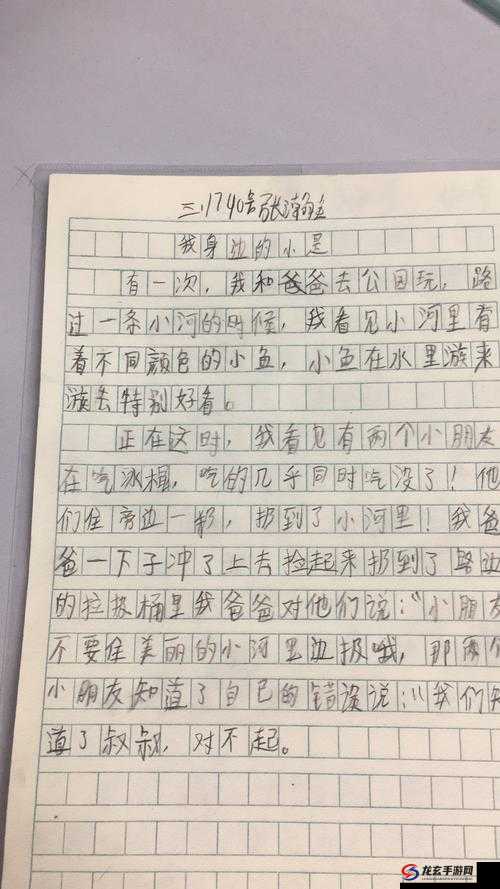 三.1740号张瀚
我身边的小是
有一次，我和爸爸去公园玩，路
过一条小河的时候，我看见小河里有
着不同颜色的小鱼，小鱼在水里游来
游去特别好看。
正在这时，我看见有两个小朋友
在吃冰棍，吃的几乎同时吃没了！他
们往旁边一扔，扔到了小河里！我爸
爸一下子冲了上去捡起来扔到了路边
的垃圾桶里我爸爸对他们说："小朋友
不要往美丽的小河里边扔哦，那两个
小朋友知道了自己的错误说："我们知
道了叔叔，对不起。
龙玄手游网